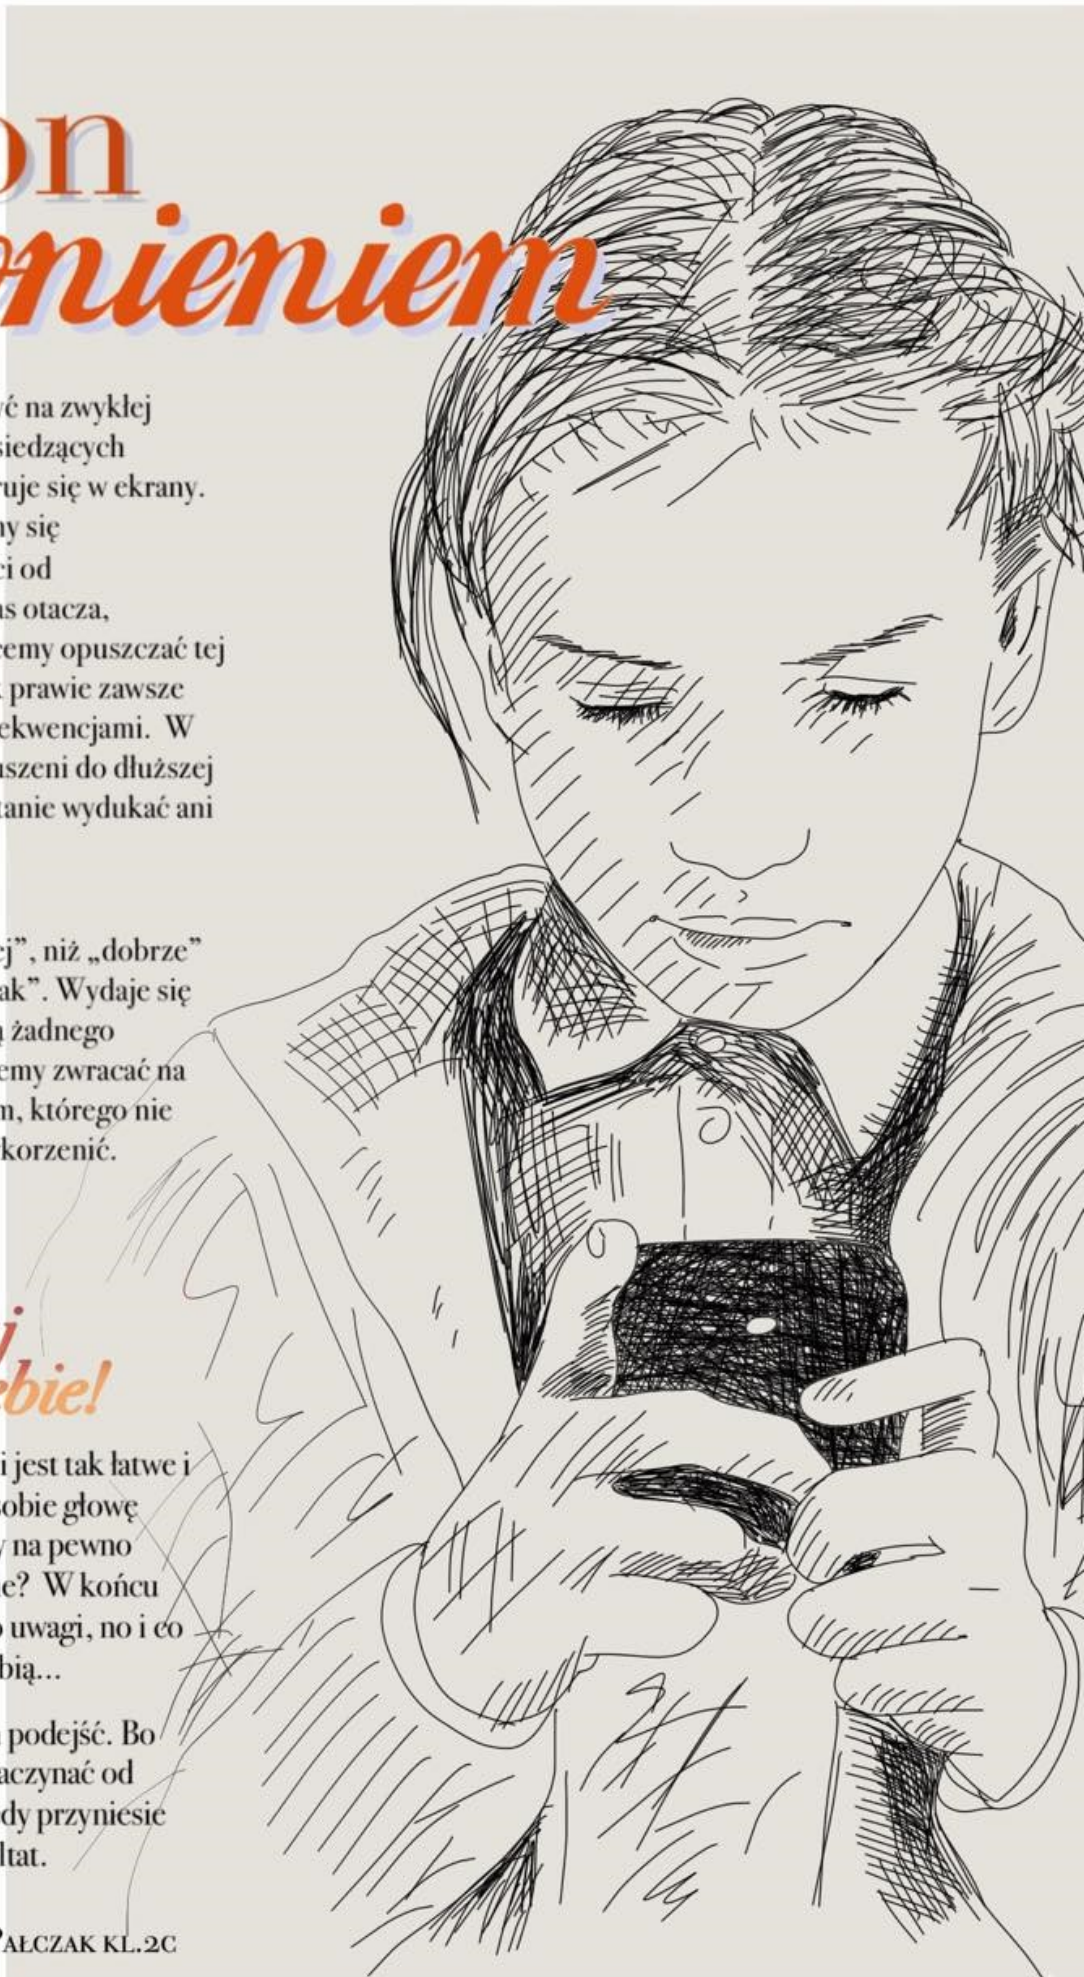 on
onieniem
yć na zwykłej
siedzących
ruje się w ekrany.
ny się
ci od
as otacza,
cemy opuszczać tej
k prawie zawsze
ekwencjami. W
uszeni do dłuższej
tanie wydukać ani
ej”, niż „dobrze”
ak”. Wydaje się
ą żadnego
emy zwracać na
m, którego nie
korzenić.
j
ebie!
i jest tak łatwe i
sobie głowę
y na pewno
ie? W końcu
o uwagi, no i co
bią...
podejść. Bo
aczynać od
dy przyniesie
ltat.
PAŁCZAK KL.2C